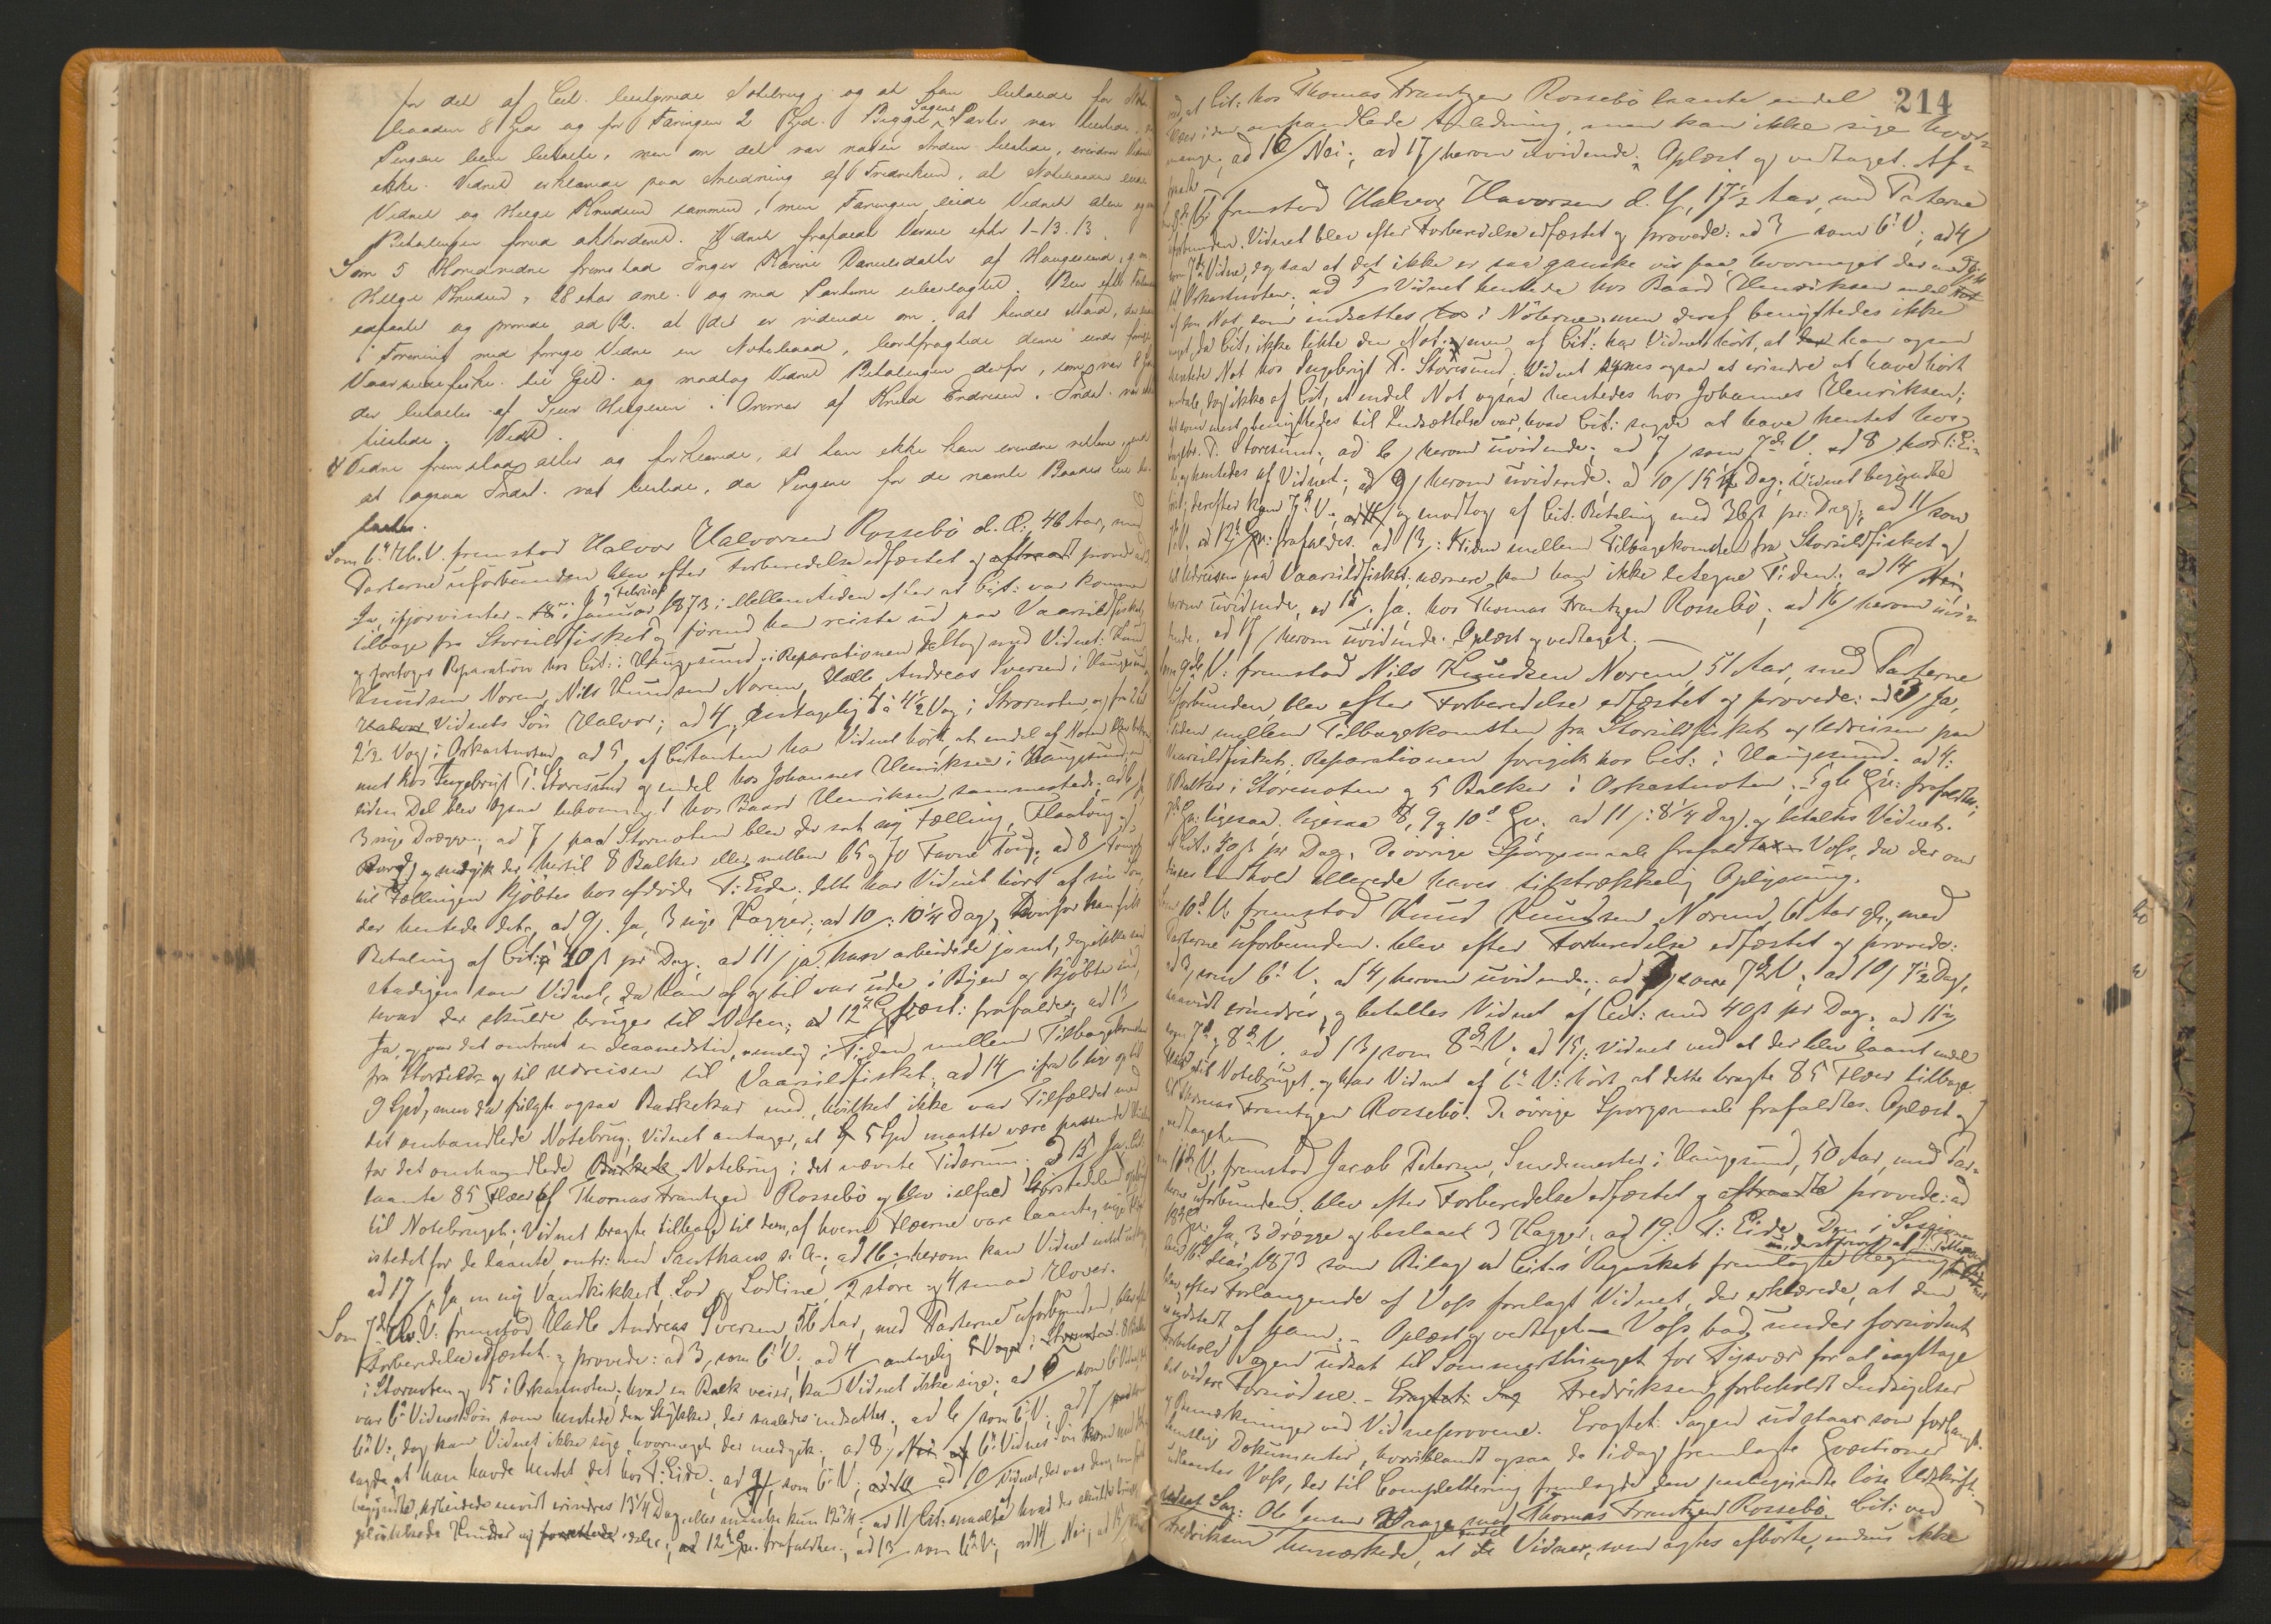 for det af Cit. bestyrede Notebrug, og at han betalte for Note
baaden 8 Spd og for Færingen 2 Spd. Begge Sagens Parter var tilstede, da
Pengene bleve betalte, men om det var nogen Anden tilstede, erindrer Vidnet
ikke. Vidnet erklærede paa Anledning af Fredriksen, at Notebaaden eiede
Vidnet og Helge Knudsen sammen, men Færingen eiede Vidnet alene og
Betalingen forud akkorderet. Vidnet frafaldt Varsel efter 1-13.13.
Som 5 Hovedvidne fremstod Inger Karine Danielsdatter af Haugesund, g. m.
Helge Knudsen, 28 Aar gml. og med Parterne ubeslægtet. Blev efter Forbere
edfæstet og provede, ad 2. at det er vidende om, at hendes Mand, der
i Forening med forrige Vidne en Notebaad, bortfragtede denne under forrige
Vaarsildfiske til Cit. og modtog Vidnet Betalingen derfor, som var 8 Spd
der betaltes af Sjur Helgesen i Overvær af Knud Endresen. Indst. var ikke
tilstede. Vedt.
4 Vidne fremstod atter og forklarede, at han ikke kan erindre rettere, end
at ogsaa Indst. var tilstede, da Pengene for de nævnte Baade blev be-
talte.
Som 6te Hv. V. fremstod Halvor Halvorsen Rossebö d. Æ. 46 Aar, med
Parterne uforbunden blev efter Forberedelse edfæstet og aftraadt provede ad
Ja, ifjorvinter i Januar, Februar 1873 i Mellemtiden efter at Cit: var kommen
tilbage fra Storsildfisket og förend han reiste ud paa Vaarsildfisket
og foretoges Reparation hos Cit: i Haugesund; i Reparationen deltog med Vidnet: Knud
Knudsen Norem, Nils Knudsen Norem, Halle Andreas Iversen i Haugesund
Halvor Vidnets Sön Halvor; ad 4, Antagelig 4 à 4½ Vog i Stornoten, og fra 2 til
2½ Vog i Orkastnoten, ad 5, af Citanten har Vidnet hört, at endel af Noten blev bekom-
met hos Ingebrigt T. Storesund og endel hos Johannes Henriksen i Haugesund, en
liden Del blev ogsaa bekommet hos Baard Henriksen sammesteds; ad 6, Ja
3 nye Drægge; ad 7, paa Stornoten blev der sat ny Fælling, Flaatoug og
og medgik der hertil 8 Balker eller mellem 65 og 70 Favne Toug; ad 8, Touget
til Fællingen kjöbtes hos afdöde T: Eide, dette har Vidnet hört af sin Sön,
der hentede det, ad 9. Ja, 3 nye Kagger; ad 10, 10¼ Dag, hvorfor han fik
Betaling af Cit: à 40 ß pr Dag. ad 11, ja han arbeidede jævnt, dog ikke saa
stadigen som Vidnet, da han af og til var ude i Byen og kjöbte ind,
hvad der skulde bruges til Noten; ad 12te Qvæst: frafaldes; ad 13,
Ja, og var det omtrent en Maanedstid, nemlig i Tiden mellem Tilbagekomsten
fra Storsild- og til Udreisen til Vaarsildfisket; ad 14, ifra 6 Spd og til
9 Spd, men da fulgte ogsaa Baskekar med, hvilket ikke var Tilfældet med
det omhandlede Notebrug; Vidnet antager, at 5 Spd maatte være passende
for det omhandlede Notebrug i det nævnte Tidsrum. ad 15, Ja, Cit.
laante 85 Flær af Thomas Frantzen Rossebö og blev isaafald
til Notebruget; Vidnet bragte tilbage til dem, af hvem Flærne vare laante, nye Flær
istedetfor de laante, ad 16, herom kan Vidnet intet
ad 17, Ja, en ny Vandkikkert, Lod og Lodline, 2 store og 4 smaa Hover.
Som 7de Hv. V: fremstod Halle Andreas Iversen, 56 Aar, med Parterne uforbunden, blev efter
Forberedelse edfæstet og provede: ad 3, som 6te V; ad 4 antagelig 8 Balker
i Stornoten og 5 i Orkastnoten; hvad en Balk veier, kan Vidnet ikke sige; ad 5 som 6te V.
var 6te Vidnes Sön, som hentede dem Stykker, der saaledes indsattes; ad 6, som 6te V, ad 7,
6te V; dog kan Vidnet ikke sige, hvormeget der medgik; ad 8, 6te Vidnes Sön
sagde, at han havde hentet det hos T: Eide; ad 9, som 6te V; ad 10, Vidnet, der var
begyndte, arbeidede saavidt erindres 13¼ Dag, eller maaske kun 12¾; ad 11, Cit: 
ad 12te Qv. frafaldtes; ad 13, som 6te V; ad 14, Nei; ad 15,
214
ved, at Cit: hos Thomas Frantzen Rossebö laante endel
Flær i den omhandlede Anledning, men kan ikke sige hvor-
mange; ad 16, Nei; ad 17, herom uvidende. Oplæst og vedtaget. Af-
traadt
fremstod Halvor Halvorsen d. Y, 17½ Aar, med Parterne
uforbunden. Vidnet blev efter Forberedelse edfæstet og provede: ad 3, som 6te V; ad 4,
som 7de Vidne, dog saa at det ikke er saa ganske vis paa, hvormeget der medgik
til Orkastnoten; ad 5, Vidnet hentede hos Baard Henriksen endel
Not, som indsattes i Nöterne, men deraf benyttedes ikke
noget, da Cit. ikke likte den Not; men af Cit: har Vidnet hört, at han ogsaa
hentede Not hos Ingebrigt T. Storesund; Vidnet synes ogsaa at erindre at have hört
omtale, dog ikke af Cit, at endel Not ogsaa hentedes hos Johannes Henriksen;
det som mest benyttedes til Indsættelse var, hvad Cit: sagde at have hentet hos
Ingebr. T. Storesund; ad 6, herom uvidende; ad 7, som 7de V. ad 8, hos T: Ei-
de og hentedes af Vidnet; ad 9, herom uvidende; ad 10, 15 Dag; Vidnet begyndte
og modtog af Cit: Betaling med 36 ß pr: Dag; ad 11, som
ad 12te Qv: frafaldes; ad 13, Tiden mellem Tilbagekomsten fra Storsildfisket og
til Udreisen paa Vaarsildfisket; nærmere kan han ikke betegne Tiden; ad 14,
herom uvidende, ad 15, Ja, hos Thomas Frantzen Rossebö; ad 16, herom uvi-
dende, ad 17, herom uvidende. Oplæst og vedtaget.
Som 9de V: fremstod Nils Knudsen Norem, 51 Aar, med Parterne
uforbunden, blev efter Forberedelse edfæstet og provede: ad 3, Ja,
Tiden mellem Tilbagekomsten fra Storsildfisket og Udreisen paa
Vaarsildfisket; Reparationen foregik hos Cit: i Haugesund. ad 4:
8 Balker i Storenoten og 5 Balker i Orkastnoten; 5te Qv: frafaldtes;
7de Qv: ligesaa, ligesaa 8, 9 og 10de Qv. ad 11, 8¼ Dag, og betaltes Vidnet
af Cit. 40 ß pr Dag. De övrige Spörgsmaale frafaldt Voss, da der om
deres Indhold allerede haves tilstrækkelig Oplysning.
Som 10de V. fremstod Knud Knudsen Norem, 61 Aar gl., med
Parterne uforbunden. blev efter Forberedelse edfæstet og provede:
ad 3, som 6te V; ad 4, herom uvidende; ad 7, som 7de V; ad 10, 7½ Dag,
saavidt erindres, og betaltes Vidnet af Cit: med 40 ß pr Dag; ad 11,
som 7de og 8de V. ad 13, som 8de V; ad 15, Vidnet ved at der blev laant endel
Flær til Notebruget, og har Vidnet af 6te V: hört at dette bragte 85 Flær tilbage
til Thomas Frantzen Rossebö. De övrige Spörgsmaale frafaldtes. Oplæst og
vedtaget.
Som 11te V. fremstod Jacob Petersen, Smedemester i Haugesund, 50 Aar, med Par-
terne uforbunden. blev efter Forberedelse edfæstet og aftraadte provede: ad
18de Qv. Ja, 3 drægge og beslaaet 3 Kagger, ad 19. T: Eide. Den i Sessionen
den 6te Mai 1873 som Bilag ved Cit.s Regnskab fremlagte Regning
blev efter Forlangende af Voss forelagt Vidnet, der erklærede, at den
er udstedt af ham. - Oplæst og vedtaget. Voss bad, under fornödent
Forbehold Sagen udsat til Sommerthinget for Tysvær for at iagttage
det videre Fornödne. - Eragtet: Sag Fredriksen forbeholdt Indsigelser
og Bemærkninger ved Vidneprovene. Eragtet: Sagen udstaar som forlangt.
Samtlige Dokumenter, hvoriblandt ogsaa de idag fremlagte Qvæstioner
udlaantes Voss, der til Complettering fremlagde den paabegyndte löse Udskrift.
Udsat Sag: Ole Jensen Vraage mod Thomas Frantzen Rossebö. Cit: ved
Fredriksen bemærkede, at endel Vidner, som agtes afhörte, endnu ikke